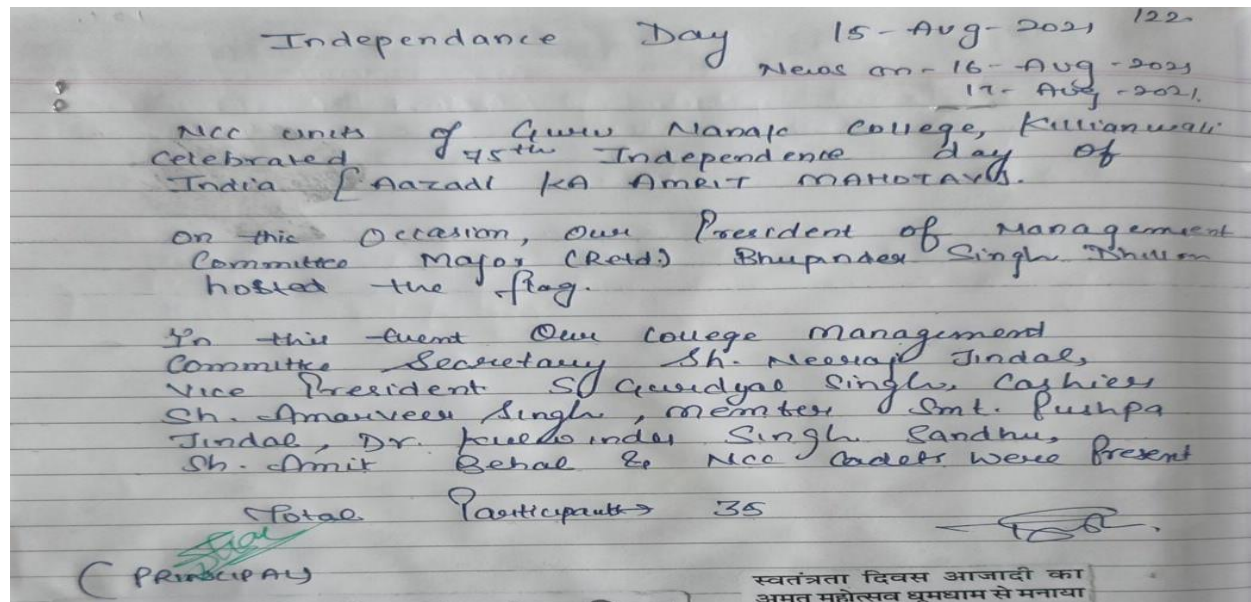 122.
Independance Day 15-Aug-2021
News on-16-Aug-2021
17-Aug-2021.
NCC units of Guru Nanak College, Killianwali
Celebrated 75th Independence day of
India [AAZADI KA AMRIT MAHOTAVS.
On this Occasion, our President of Management
Committee Major (Retd.) Bhupinder Singh Dhillon
hosted the flag.
In this Event Our College management
Committe Secretary Sh. Neeraj Jindal,
Vice President S. Gurdyal Singh, Cashier
Sh. Amarveer Singh, member Smt. Pushpa
Jindal, Dr. Kulwinder Singh Sandhu,
Sh. Amit Behal & NCC Cadets were Present
Total Participants → 35
(PRINCIPAL)
स्वतंत्रता दिवस आजादी का
अमृत महोत्सव धूमधाम से मनाया